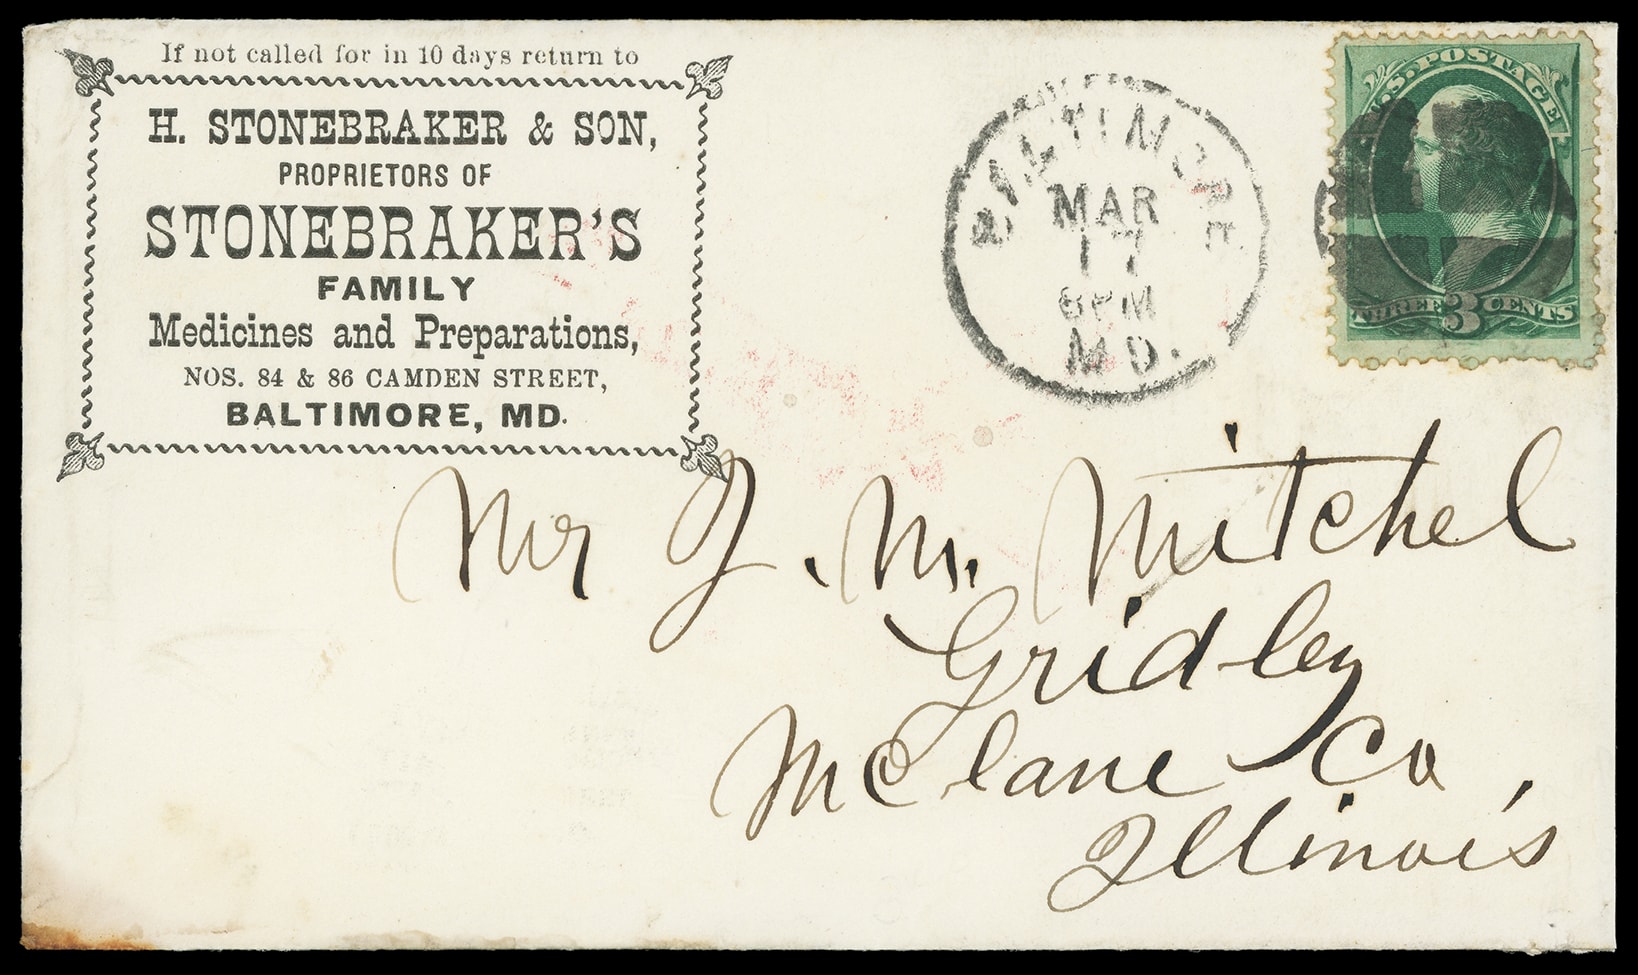 If not called for in 10 days return to
H. STONEBRAKER & SON,
PROPRIETORS OF
STONEBRAKER'S
FAMILY
Medicines and Preparations,
NOS. 84 & 86 CAMDEN STREET,
BALTIMORE, MD.
BALTIMORE
MAR
17
6PM
MD.
U.S. POSTAGE
THREE 3 CENTS
Mr J. M. Mitchel
Gridley
McLane Co,
Illinois